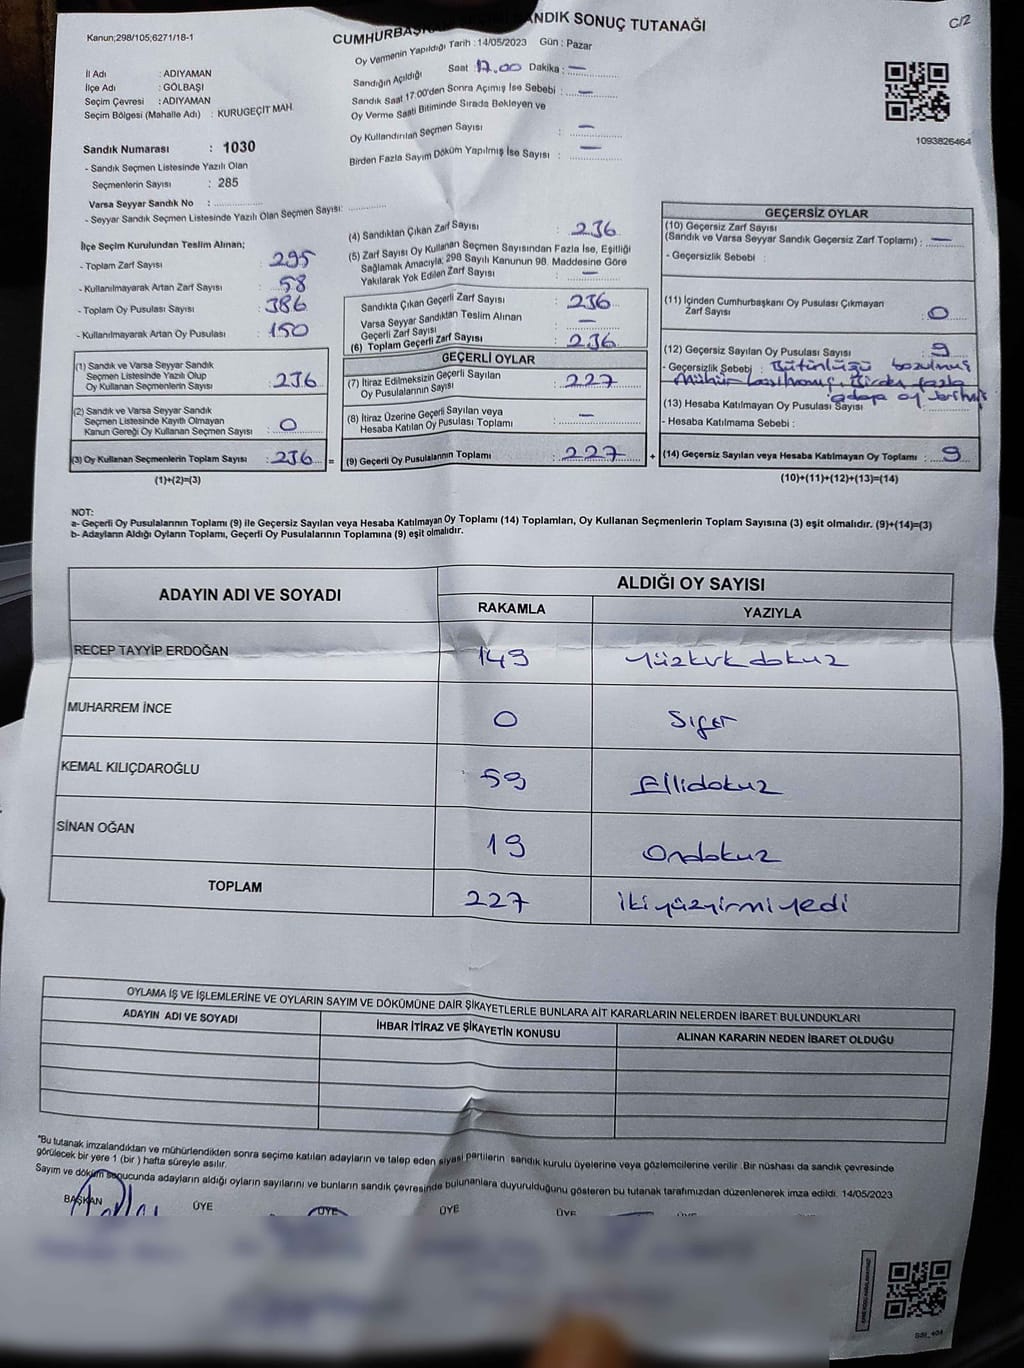 C/2
Kanun;298/105;6271/18-1
CUMHURBAŞKANI SEÇİMİ SANDIK SONUÇ TUTANAĞI
Oy Vermenin Yapıldığı Tarih : 14/05/2023 Gün : Pazar
Sandığın Açıldığı Saat 17.00 Dakika : —
Sandık Saat 17:00'den Sonra Açımış İse Sebebi : —
Oy Verme Saati Bitiminde Sırada Bekleyen ve
Oy Kullandırılan Seçmen Sayısı : —
Birden Fazla Sayım Döküm Yapılmış İse Sayısı : —
1093826464
İl Adı : ADIYAMAN
İlçe Adı : GÖLBAŞI
Seçim Çevresi : ADIYAMAN
Seçim Bölgesi (Mahalle Adı) : KURUGEÇİT MAH.
Sandık Numarası : 1030
- Sandık Seçmen Listesinde Yazılı Olan
Seçmenlerin Sayısı : 285
Varsa Seyyar Sandık No :
- Seyyar Sandık Seçmen Listesinde Yazılı Olan Seçmen Sayısı:
İlçe Seçim Kurulundan Teslim Alınan;
- Toplam Zarf Sayısı : 295
- Kullanılmayarak Artan Zarf Sayısı : 58
- Toplam Oy Pusulası Sayısı : 386
- Kullanılmayarak Artan Oy Pusulası : 150
(1) Sandık ve Varsa Seyyar Sandık
Seçmen Listesinde Yazılı Olup
Oy Kullanan Seçmenlerin Sayısı : 236
(2) Sandık ve Varsa Seyyar Sandık
Seçmen Listesinde Kayıtlı Olmayan
Kanun Gereği Oy Kullanan Seçmen Sayısı : 0
(3) Oy Kullanan Seçmenlerin Toplam Sayısı : 236 =
(1)+(2)=(3)
(4) Sandıktan Çıkan Zarf Sayısı : 236
(5) Zarf Sayısı Oy Kullanan Seçmen Sayısından Fazla İse, Eşitliği
Sağlamak Amacıyla, 298 Sayılı Kanunun 98. Maddesine Göre
Yakılarak Yok Edilen Zarf Sayısı : —
Sandıkta Çıkan Geçerli Zarf Sayısı : 236
Varsa Seyyar Sandıktan Teslim Alınan
Geçerli Zarf Sayısı : —
(6) Toplam Geçerli Zarf Sayısı : 236
GEÇERLİ OYLAR
(7) İtiraz Edilmeksizin Geçerli Sayılan
Oy Pusulalarının Sayısı : 227
(8) İtiraz Üzerine Geçerli Sayılan veya
Hesaba Katılan Oy Pusulaları Toplamı : —
(9) Geçerli Oy Pusulalarının Toplamı : 227 +
GEÇERSİZ OYLAR
(10) Geçersiz Zarf Sayısı
(Sandık ve Varsa Seyyar Sandık Geçersiz Zarf Toplamı) : —
- Geçersizlik Sebebi :
(11) İçinden Cumhurbaşkanı Oy Pusulası Çıkmayan
Zarf Sayısı : 0
(12) Geçersiz Sayılan Oy Pusulası Sayısı : 9
- Geçersizlik Sebebi : Bütünlüğü bozulmuş
Mühür basılmamış, Birden fazla
adaya oy verilmiş
(13) Hesaba Katılmayan Oy Pusulası Sayısı :
- Hesaba Katılmama Sebebi :
(14) Geçersiz Sayılan veya Hesaba Katılmayan Oy Toplamı : 9
(10)+(11)+(12)+(13)=(14)
NOT:
a- Geçerli Oy Pusulalarının Toplamı (9) ile Geçersiz Sayılan veya Hesaba Katılmayan Oy Toplamı (14) Toplamları, Oy Kullanan Seçmenlerin Toplam Sayısına (3) eşit olmalıdır. (9)+(14)=(3)
b- Adayların Aldığı Oyların Toplamı, Geçerli Oy Pusulalarının Toplamına (9) eşit olmalıdır.
ADAYIN ADI VE SOYADI ALDIĞI OY SAYISI
RAKAMLA YAZIYLA
RECEP TAYYİP ERDOĞAN 149 Yüzkırkdokuz
MUHARREM İNCE 0 Sıfır
KEMAL KILIÇDAROĞLU 59 Ellidokuz
SİNAN OĞAN 19 Ondokuz
TOPLAM 227 ikiyüzyirmiyedi
OYLAMA İŞ VE İŞLEMLERİNE VE OYLARIN SAYIM VE DÖKÜMÜNE DAİR ŞİKAYETLERLE BUNLARA AİT KARARLARIN NELERDEN İBARET BULUNDUKLARI
ADAYIN ADI VE SOYADI İHBAR İTİRAZ VE ŞİKAYETİN KONUSU ALINAN KARARIN NEDEN İBARET OLDUĞU
"Bu tutanak imzalandıktan ve mühürlendikten sonra seçime katılan adayların ve talep eden siyasi partilerin sandık kurulu üyelerine veya gözlemcilerine verilir .Bir nüshası da sandık çevresinde
görülecek bir yere 1 (bir ) hafta süreyle asılır.
Sayım ve döküm sonucunda adayların aldığı oyların sayılarını ve bunların sandık çevresinde bulunanlara duyurulduğunu gösteren bu tutanak tarafımızdan düzenlenerek imza edildi. 14/05/2023
BAŞKAN ÜYE ÜYE ÜYE ÜYE